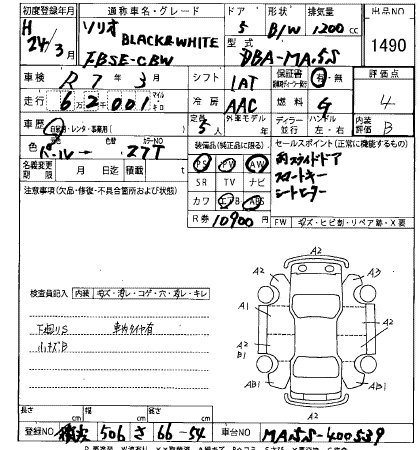 初度登録年月 通称車名・グレード ドア 形状 排気量 出品NO
H 24年 3月 ソリオ BLACK&WHITE 5 B/W 1200cc 1490
型式
DBA-MA15S
車検 R 7年 3月 シフト 1AT 保証書 有・無 評価点
走行 6万2千001 マイル キロ 冷房 AAC 燃料 G 4
車歴 自家用・レンタ・事業用( ) 定員 5人 外車モデル年 ディーラー 並行 ハンドル 左・右 内装評価 B
色 パール → 色替 カラーNO Z7T 装備品(純正品に限る) セールスポイント(正常に機能するもの)
PS PW AW 両スライドドア
名義変更期限 月 日 迄 積載 t SR TV ナビ スマートキー
注意事項(欠品・修復・不具合箇所および状態) カワ エアB ABS シートヒーター
R券 10900 FW キズ・ヒビ割・リペア跡・X
A2
A2 A3
検査員記入 内装 キズ・汚レ・コゲ・穴・汚レ・キレ
A1 A2
下廻りS
小キズB
A2 A2
B1
AB1 AB1
A2
長さ cm 幅 cm 高さ cm
登録NO 横浜 506 さ 66-54 車台NO MA15S-400539